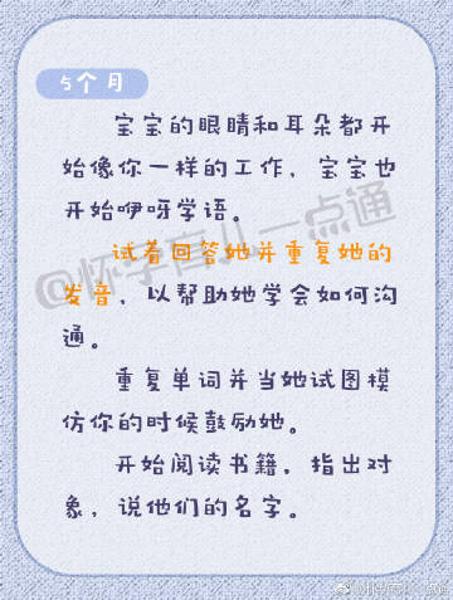 5个月
宝宝的眼睛和耳朵都开
始像你一样的工作，宝宝也
开始咿呀学语。
试着回答她并重复她的
发音，以帮助她学会如何沟
通。
重复单词并当她试图模
仿你的时候鼓励她。
开始阅读书籍，指出对
象，说他们的名字。
@怀孕育儿一点通
@怀孕育儿一点通